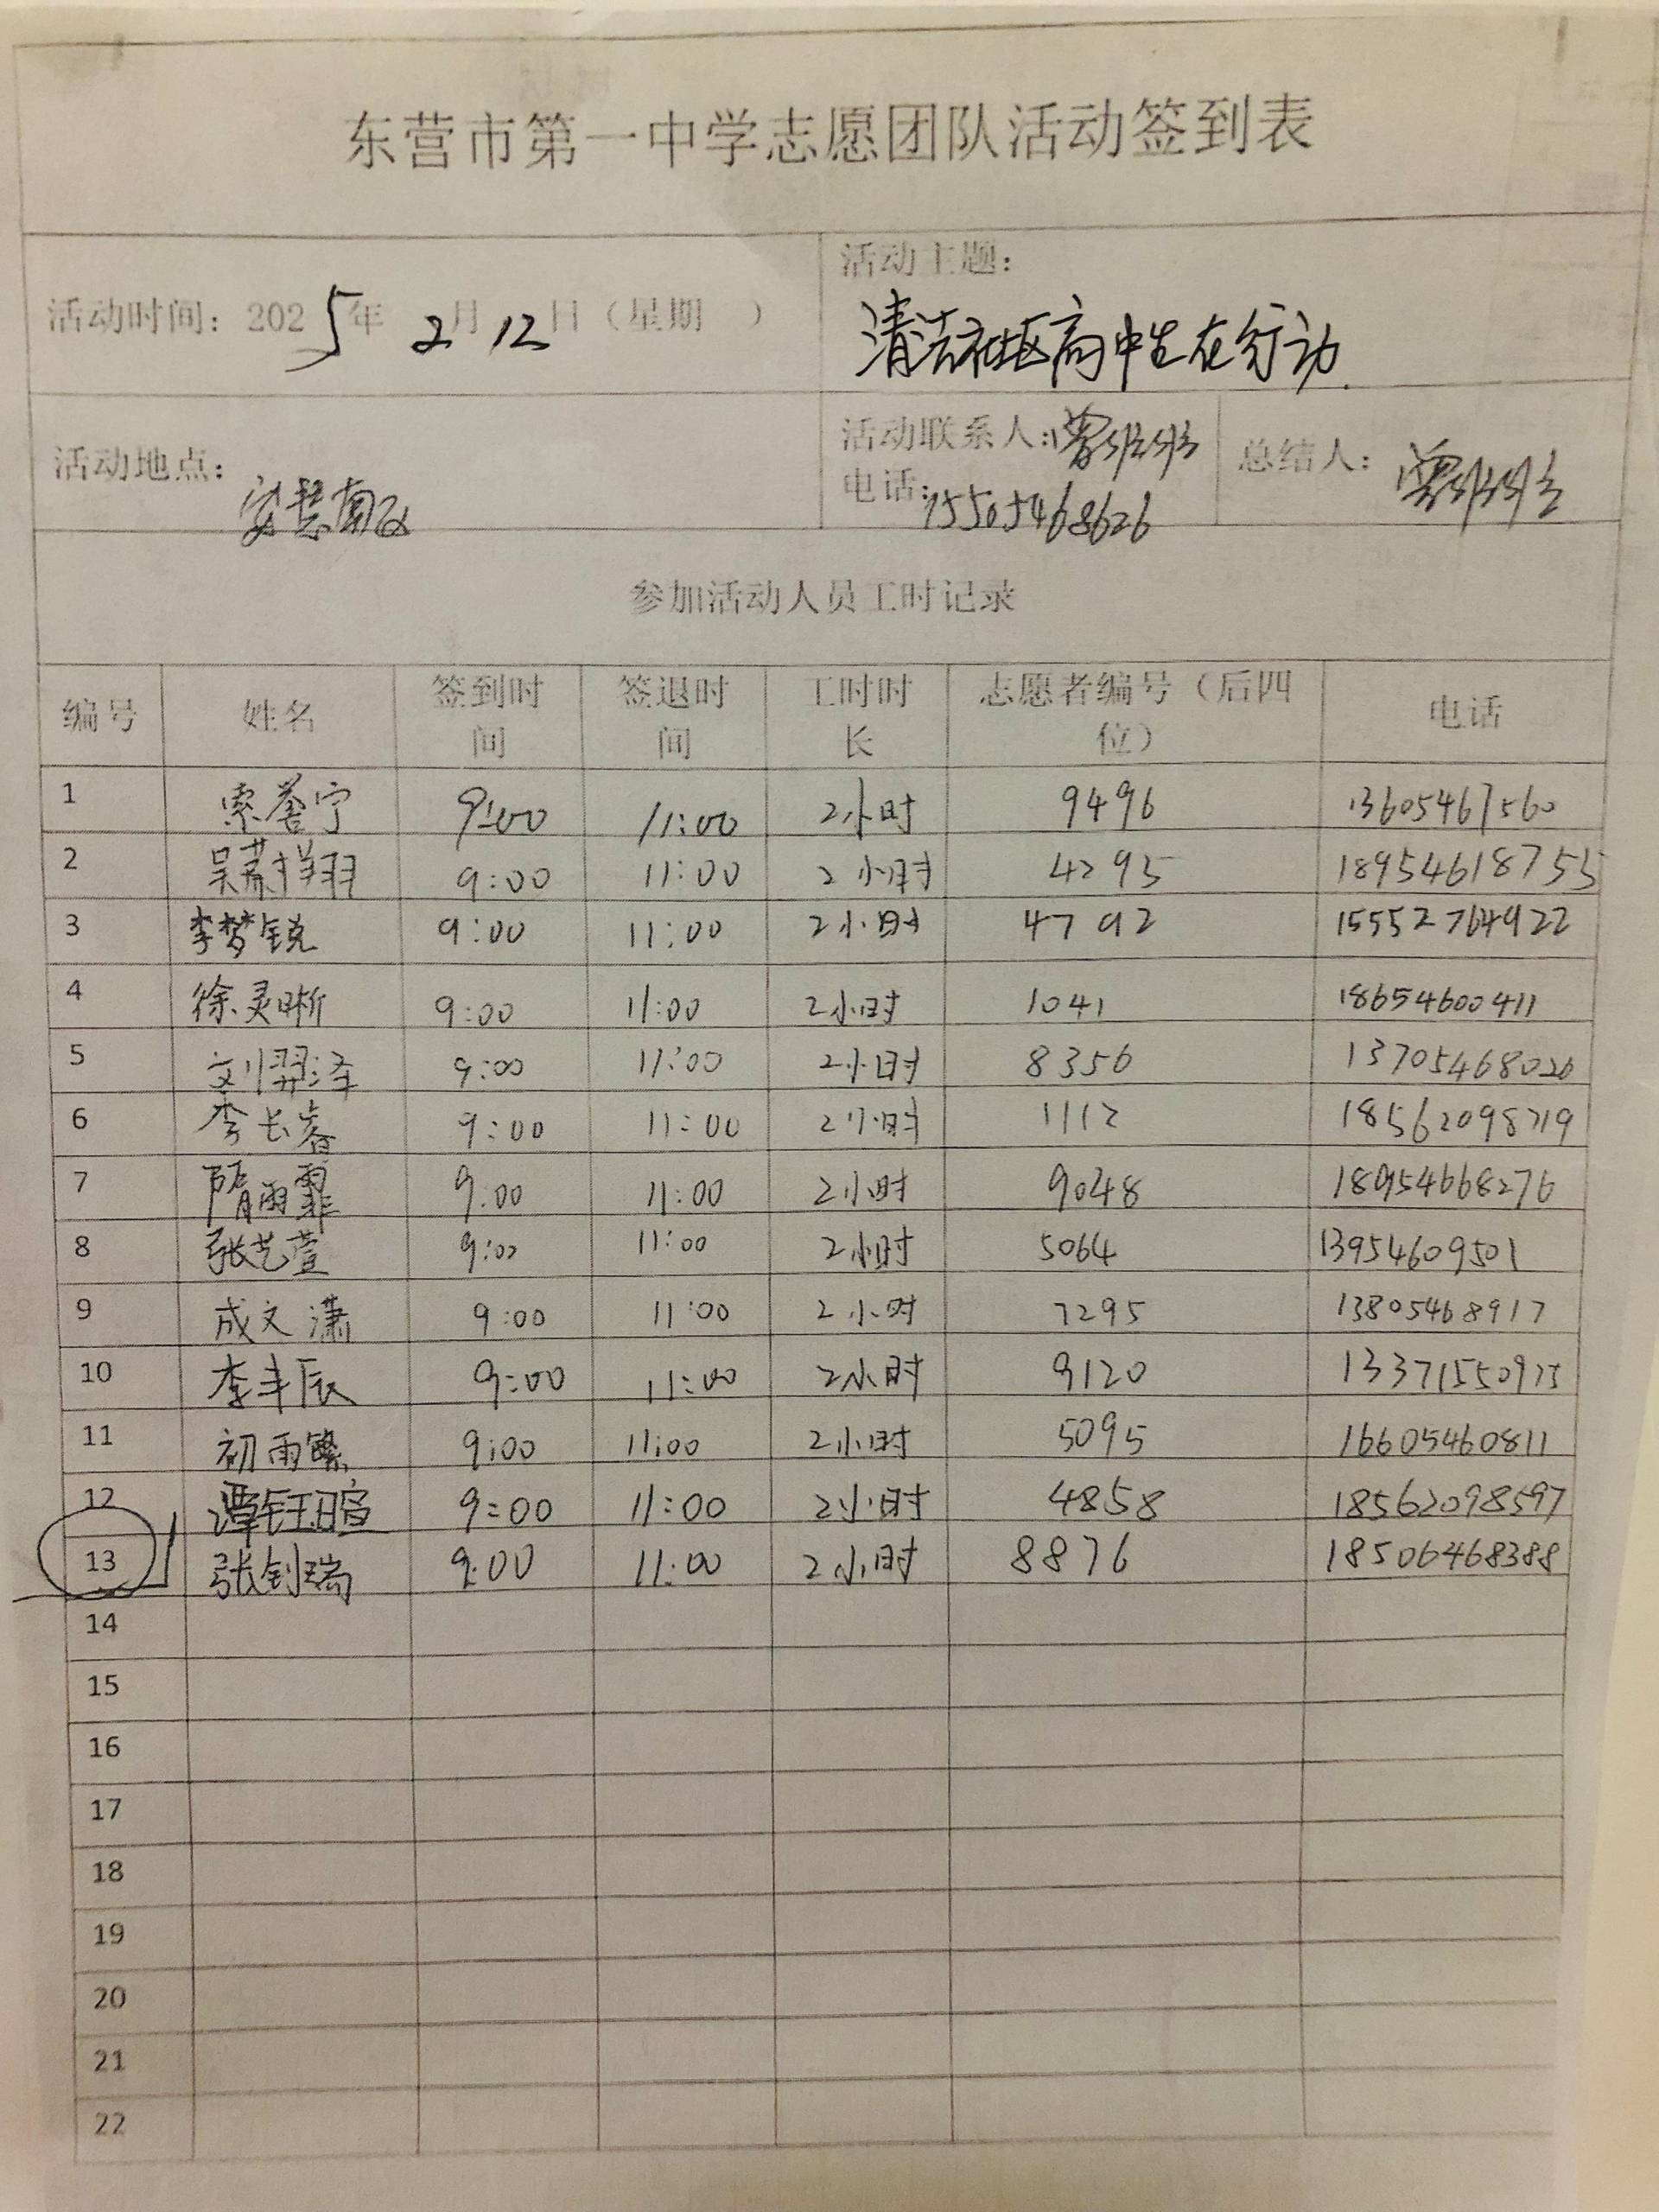 东营市第一中学志愿团队活动签到表
活动时间：2025年 2月12日（星期 ）
活动主题：
清洁社区高中生在行动
活动地点：安慧南区
活动联系人：
电话：15505468626
总结人：
参加活动人员工时记录
编号 姓名 签到时间 签退时间 工时时长 志愿者编号（后四位） 电话
1 索誉宁 9:00 11:00 2小时 9496 13605467560
2 吴肃祥翔 9:00 11:00 2小时 4295 18954618755
3 李梦锐 9:00 11:00 2小时 4792 15552764922
4 徐灵晰 9:00 11:00 2小时 1041 18654600411
5 刘羿泽 9:00 11:00 2小时 8356 13705468026
6 李长睿 9:00 11:00 2小时 1112 18562098719
7 隋雨霏 9:00 11:00 2小时 9048 18954668276
8 张艺萱 9:00 11:00 2小时 5064 13954609501
9 成文潇 9:00 11:00 2小时 7295 13805468917
10 李丰辰 9:00 11:00 2小时 9120 13371550975
11 初雨繁 9:00 11:00 2小时 5095 16605460811
12 谭钰瑄 9:00 11:00 2小时 4858 18562098597
13 张钊瑞 9:00 11:00 2小时 8876 18506468388
14
15
16
17
18
19
20
21
22